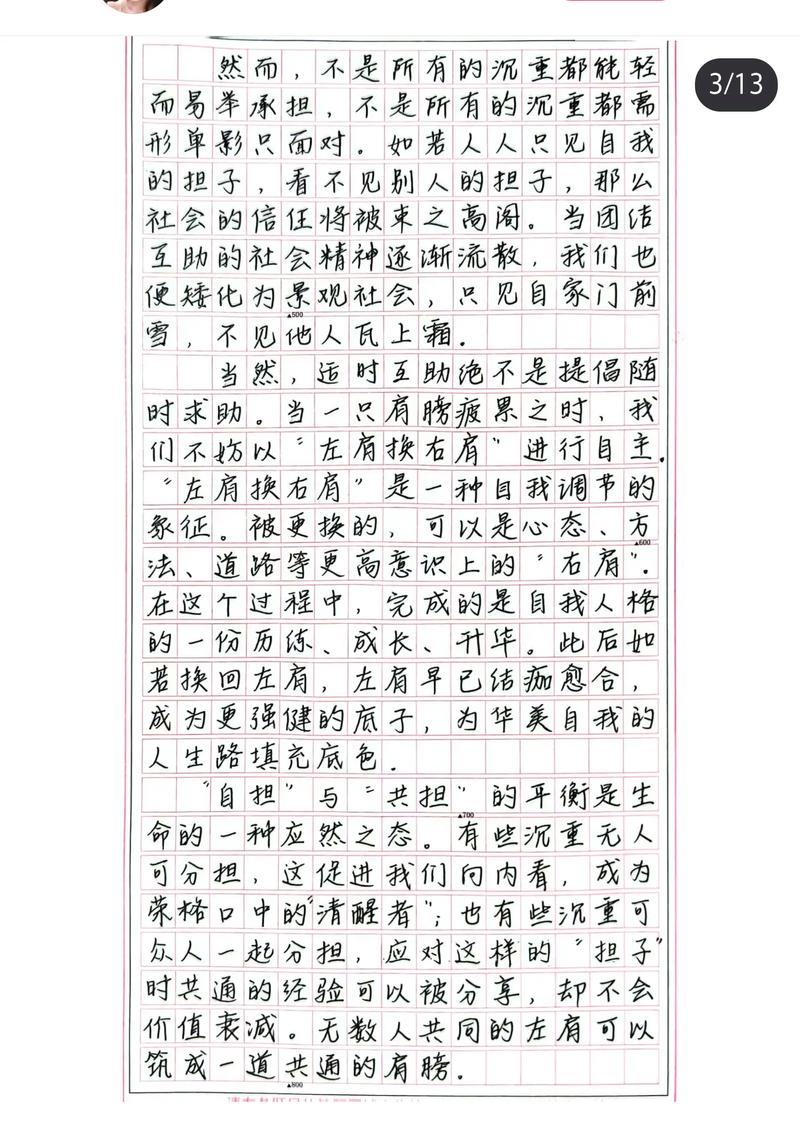 3/13
然而，不是所有的沉重都能轻
而易举承担，不是所有的沉重都需
形单影只面对。如若人人只见自我
的担子，看不见别人的担子，那么
社会的信任将被束之高阁。当团结
互助的社会精神逐渐流散，我们也
便矮化为景观社会，只见自家门前
▲500
雪，不见他人瓦上霜.
当然，适时互助绝不是提倡随
时求助。当一只肩膀疲累之时，我
们不妨以“左肩换右肩”进行自主.
“左肩换右肩”是一种自我调节的
象征。被更换的，可以是心态、方
▲600
法、道路等更高意识上的“右肩”.
在这个过程中，完成的是自我人格
的一份历练、成长、升华。此后如
若换回左肩，左肩早已结痂愈合，
成为更强健的底子，为华美自我的
人生路填充底色.
“自担”与“共担”的平衡是生
▲700
命的一种应然之态。有些沉重无人
可分担，这促进我们向内看，成为
荣格口中的“清醒者”；也有些沉重可
众人一起分担，应对这样的“担子”
时共通的经验可以被分享，却不会
价值衰减。无数人共同的左肩可以
筑成一道共通的肩膀.
▲800